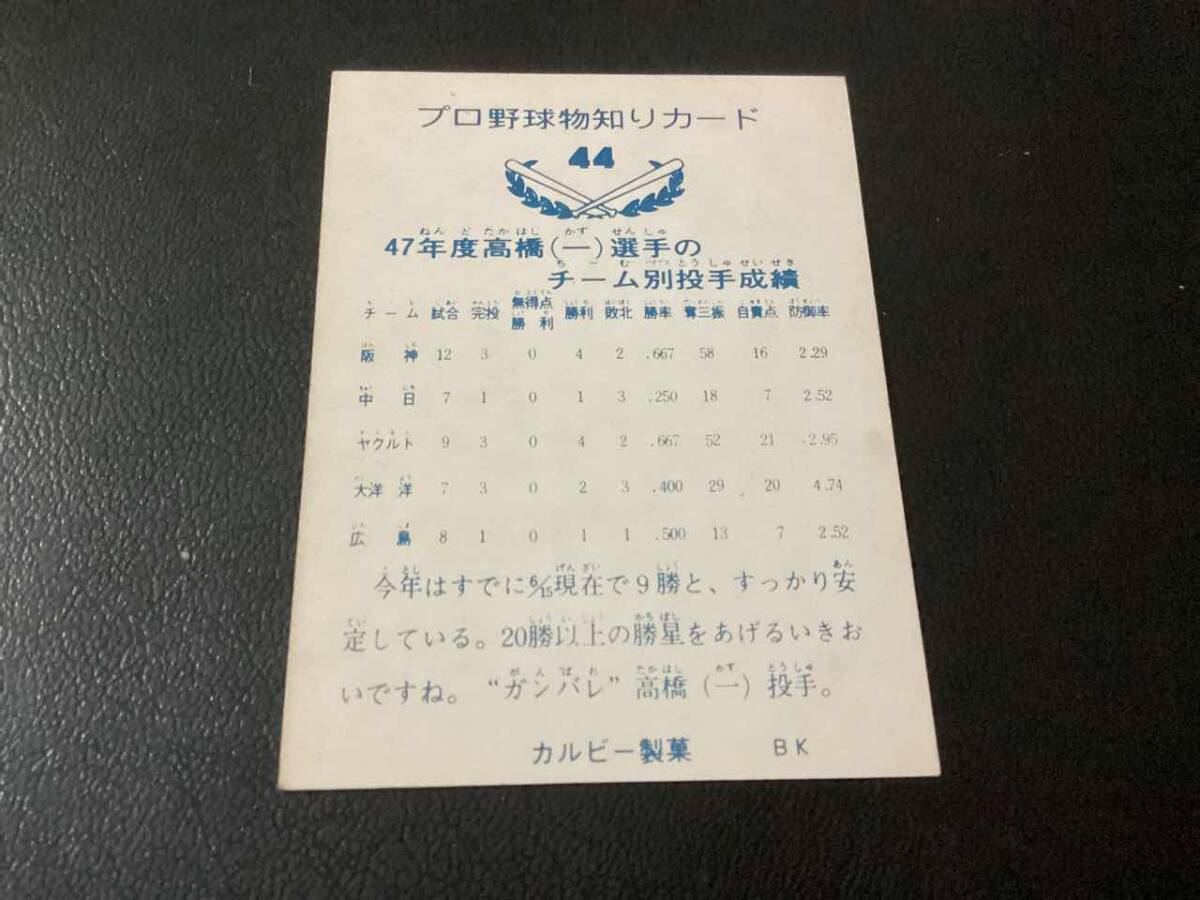 プロ野球物知りカード
44
47年度高橋(一)選手の
チーム別投手成績
チーム 試合 完投 無得点勝利 勝利 敗北 勝率 奪三振 自責点 防御率
阪神 12 3 0 4 2 .667 58 16 2.29
中日 7 1 0 1 3 .250 18 7 2.52
ヤクルト 9 3 0 4 2 .667 52 21 2.95
大洋洋 7 3 0 2 3 .400 29 20 4.74
広島 8 1 0 1 1 .500 13 7 2.52
今年はすでに6/15現在で9勝と、すっかり安
定している。20勝以上の勝星をあげるいきお
いですね。“ガンバレ”高橋(一)投手。
カルビー製菓 BK